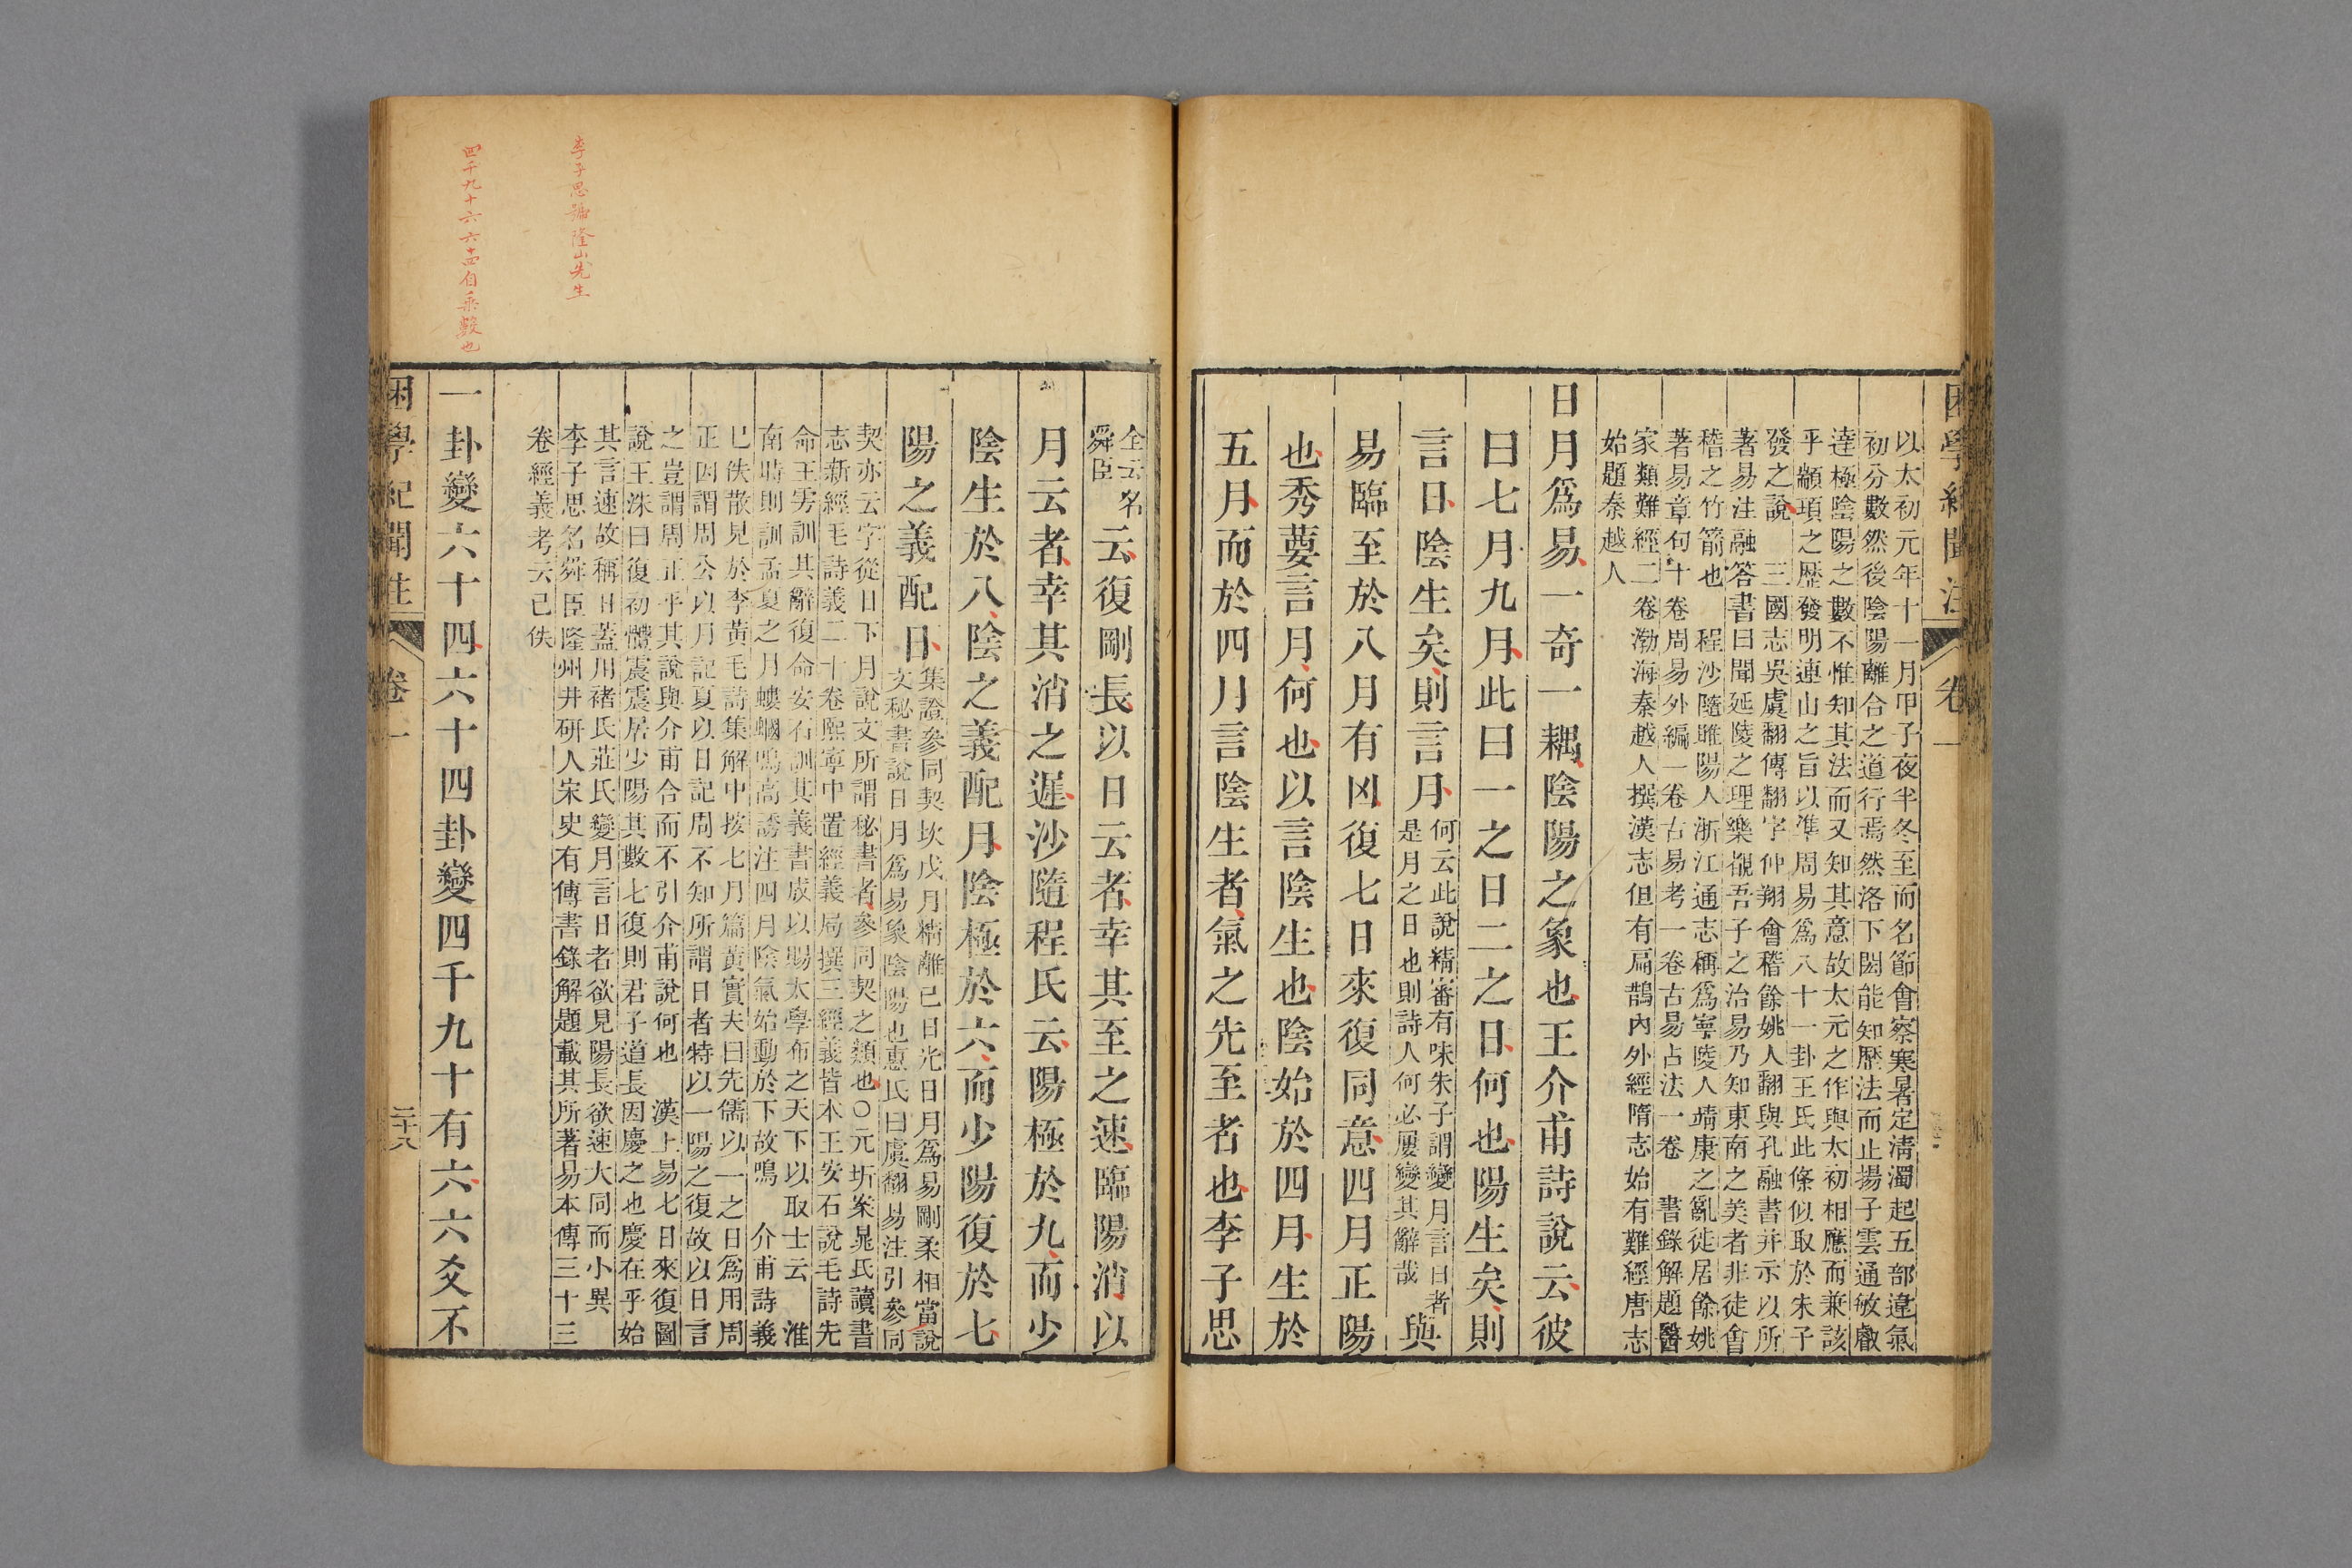 困學紀聞注
卷一
以太初元年十一月甲子夜半冬至而名節會察寒暑定淸濁起五部違氣
初分數然後陰陽離合之道行焉然洛下閎能知歷法而止揚子雲通敏叡
達極陰陽之數不惟知其法而又知其意故太元之作與太初相應而兼該
乎顓頊之歷發明連山之旨以準周易爲八十一卦王氏此條似取於朱子
發之說　三國志吳虞翻傳翻字仲翔會稽餘姚人翻與孔融書并示以所
著易注融答書曰聞延陵之理樂覩吾子之治易乃知東南之美者非徒會
稽之竹箭也　程沙隨雎陽人浙江通志稱爲寧陵人靖康之亂徙居餘姚
著易章句十卷周易外編一卷古易考一卷古易占法一卷　書錄解題醫
家類難經二卷渤海秦越人撰漢志但有扁鵲內外經隋志始有難經唐志
始題秦越人
日月爲易一奇一耦陰陽之象也王介甫詩說云彼
曰七月九月此曰一之日二之日何也陽生矣則
言日陰生矣則言月何云此說精審有味朱子謂變月言日者
是月之日也則詩人何必屢變其辭哉與
易臨至於八月有凶復七日來復同意四月正陽
也秀葽言月何也以言陰生也陰始於四月生於
五月而於四月言陰生者氣之先至者也李子思
全云名
舜臣云復剛長以日云者幸其至之速臨陽消以
月云者幸其消之遲沙隨程氏云陽極於九而少
陰生於八陰之義配月陰極於六而少陽復於七
陽之義配日集證參同契坎戊月精離己日光日月爲易剛柔相當說
文秘書說日月爲易象陰陽也惠氏曰虞翻易注引參同
契亦云字從日下月說文所謂秘書者參同契之類也○元圻案晁氏讀書
志新經毛詩義二十卷熙寧中置經義局撰三經義皆本王安石說毛詩先
命王雱訓其辭復命安石訓其義書成以賜太學布之天下以取士云　淮
南時則訓孟夏之月螻蟈鳴高誘注四月陰氣始動於下故鳴　介甫詩義
已佚散見於李黃毛詩集解中按七月篇黃實夫曰先儒以一之日爲用周
正因謂周公以月記夏以日記周不知所謂日者特以一陽之復故以日言
之豈謂周正乎其說與介甫合而不引介甫說何也　漢上易七日來復圖
說王洙曰復初體震震居少陽其數七復則君子道長因慶之也慶在乎始
其言速故稱日蓋川褚氏莊氏變月言日者欲見陽長欲速大同而小異
李子思名舜臣隆州井研人宋史有傳書錄解題載其所著易本傳三十三
卷經義考云已佚
一卦變六十四六十四卦變四千九十有六六爻不
困學紀聞注
卷一
二十六
李子思號隆山先生
四千九十六六十四自乘數也